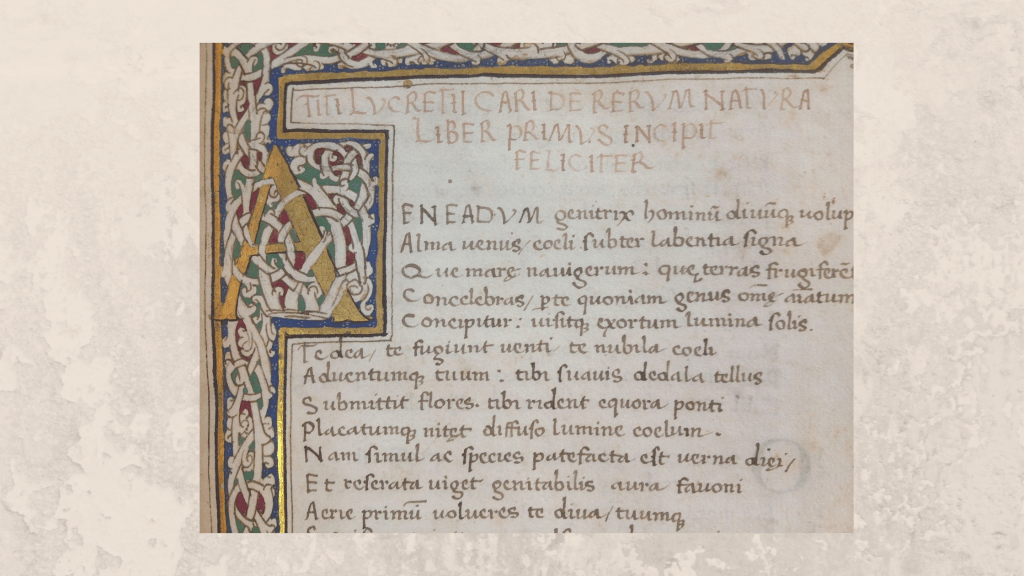 TITI LVCRETII CARI DE RERVM NATVRA
LIBER PRIMVS INCIPIT
FELICITER
AENEADVM genitrix hominū diuūq; uolup
Alma uenus/ coeli subter labentia signa
Que marę nauigerum: quę terras frugiferēt
Concelebras/ p̱te quoniam genus omę aīatum
Concipitur: uisitq; exortum lumina solis.
Te dea/ te fugiunt uenti te nubila coeli
Aduentumq; tuum: tibi suauis dedala tellus
Submittit flores. tibi rident equora ponti
Placatumq; nitęt diffuso lumine coelum.
Nam simul ac species patefacta est uerna diei/
Et reserata uiget genitabilis aura fauoni
Aerie primū uolucres te diua/ tuumq;